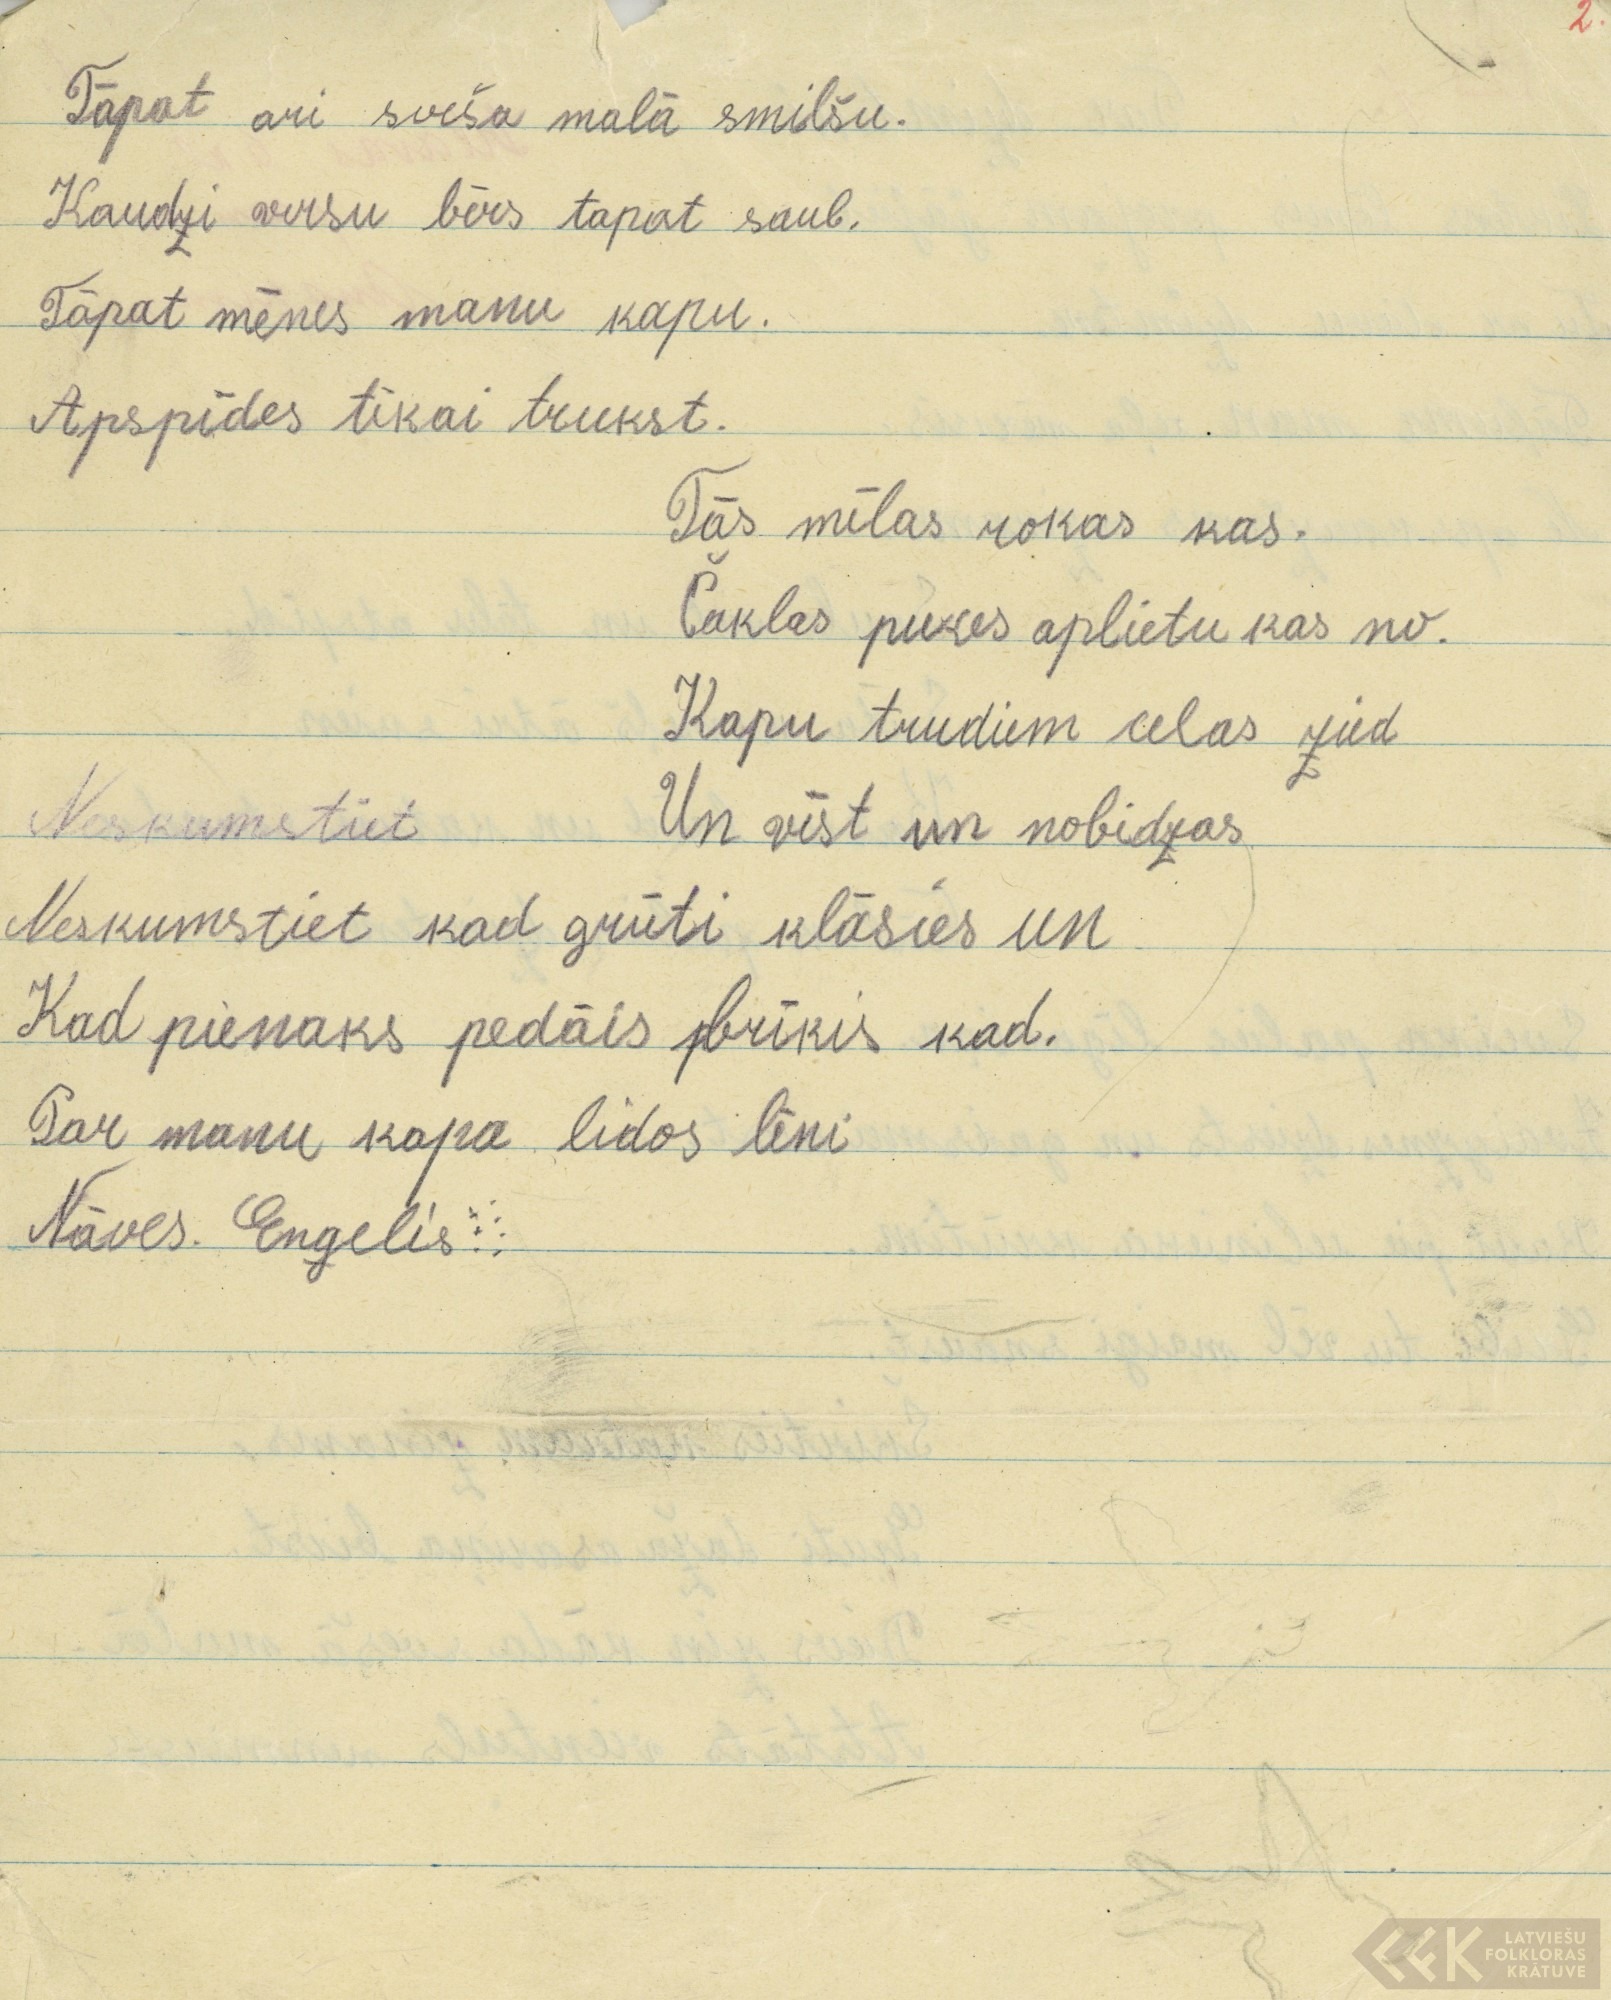 2.
Tāpat ari sveša malā smilšu.
Kaudzi versu bērs tapat saub.
Tāpat mēnes manu kapu.
Apspīdes tikai trukst.
Tās mīlas rokas kas.
Čaklas pukes aplietu kas no.
Kapu trudiem celas zied
Neskumstiet
Un vīst un nobidzas
Neskumstiet kad grūti klāsies un
Kad pienaks pedāis brīkis kad.
Par manu kapa lidos lēni
Nāves. Engelis
LATVIEŠU
FOLKLORAS
KRĀTUVE